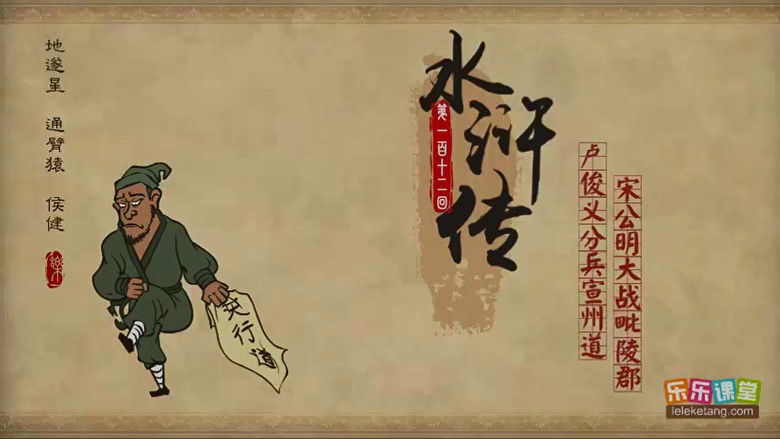 水浒传
第一百十二回
卢俊义分兵宣州道
宋公明大战毗陵郡
地遂星 通臂猿 侯健
行道
乐乐课堂
leleketang.com